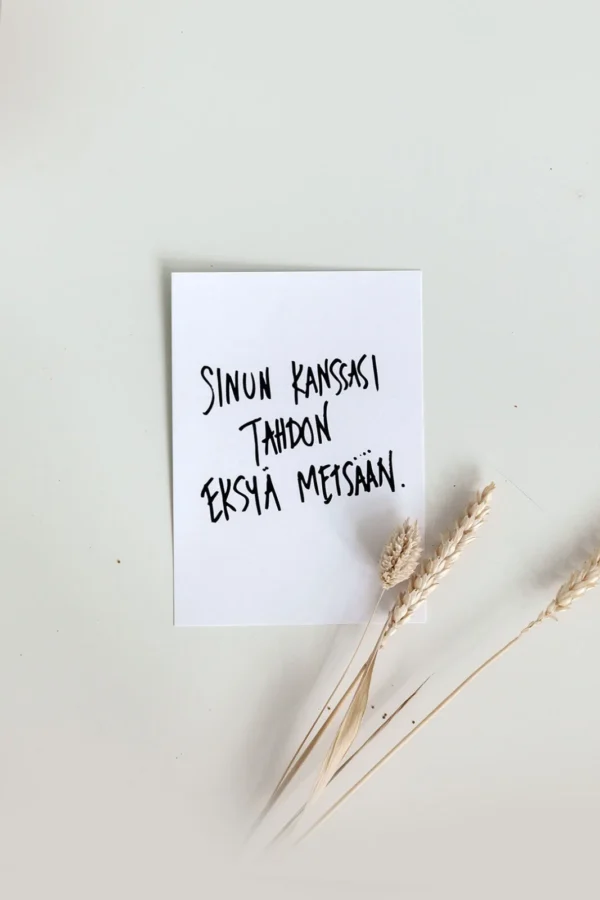 SINUN KANSSASI
TAHDON
EKSYÄ METSÄÄN.